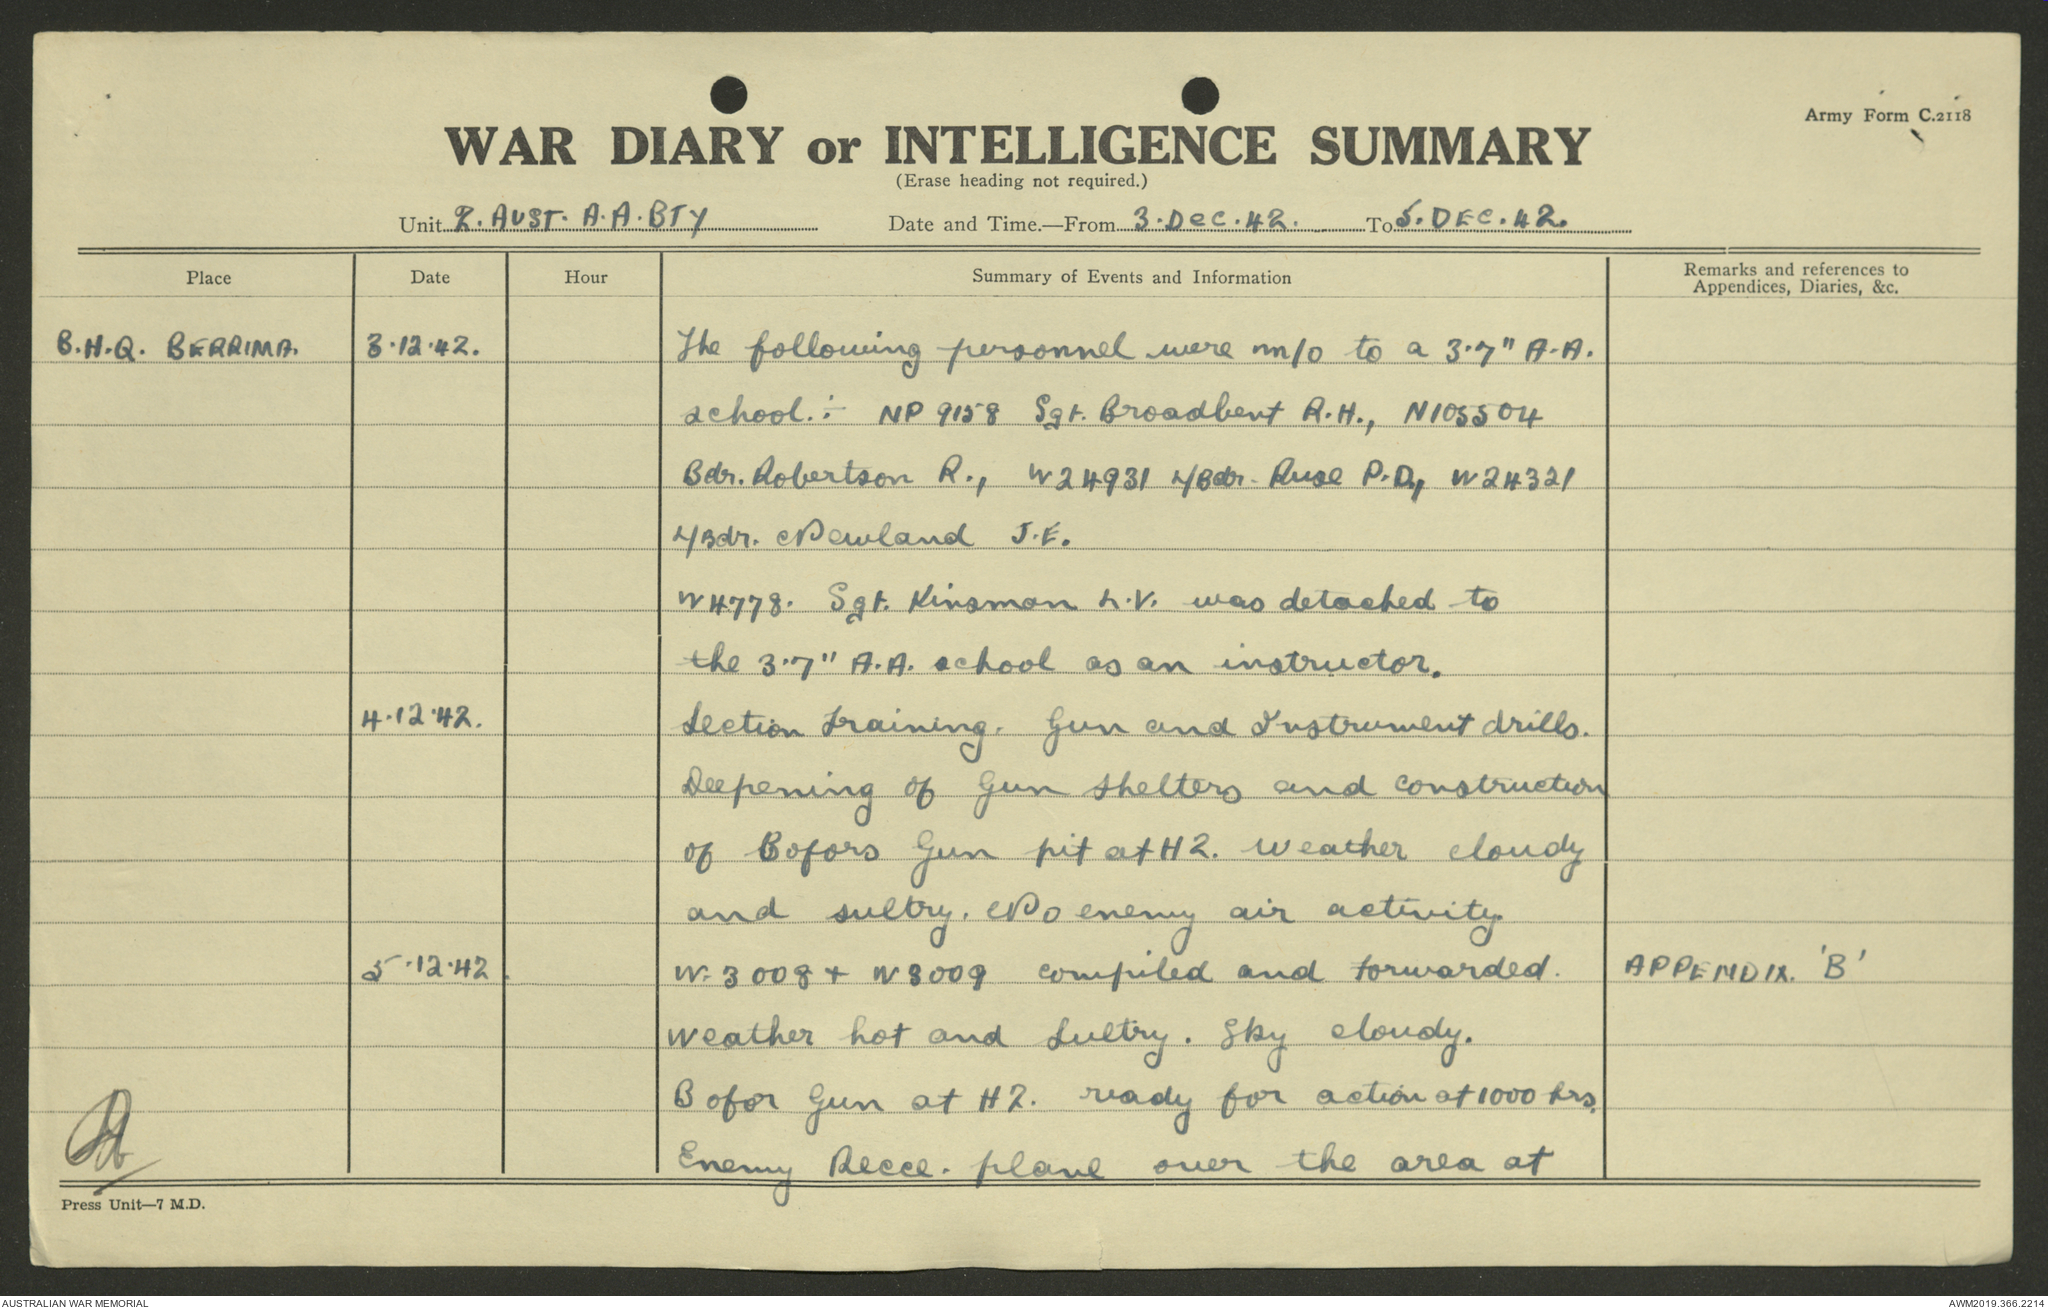 Army Form C.2118
WAR DIARY or INTELLIGENCE SUMMARY
(Erase heading not required.)
Unit 2. AUST. A.A. BTY Date and Time.—From 3. DEC. 42. To 5. DEC. 42.
Place Date Hour Summary of Events and Information Remarks and references to
Appendices, Diaries, &c.
B.H.Q. BERRIMA. 3.12.42. The following personnel were m/o to a 3.7" A.A.
school. :- NP 9158 Sgt. Broadbent R.H., N105504
Bdr. Robertson R., W24931 L/Bdr. Ruse P.D., W24321
L/Bdr. Newland J.E.
W4778. Sgt. Kinsman L.V. was detached to
the 3.7" A.A. school as an instructor.
4.12.42. Section training. Gun and Instrument drills.
Deepening of Gun shelters and construction
of Bofors Gun pit at H2. Weather cloudy
and sultry. No enemy air activity.
5.12.42. W.3008 + W3009 compiled and forwarded. APPENDIX. 'B'
Weather hot and sultry. Sky cloudy.
Bofor Gun at H2. ready for action at 1000 hrs.
Enemy Recce. plane over the area at
Press Unit—7 M.D.
AUSTRALIAN WAR MEMORIAL AWM2019.366.2214